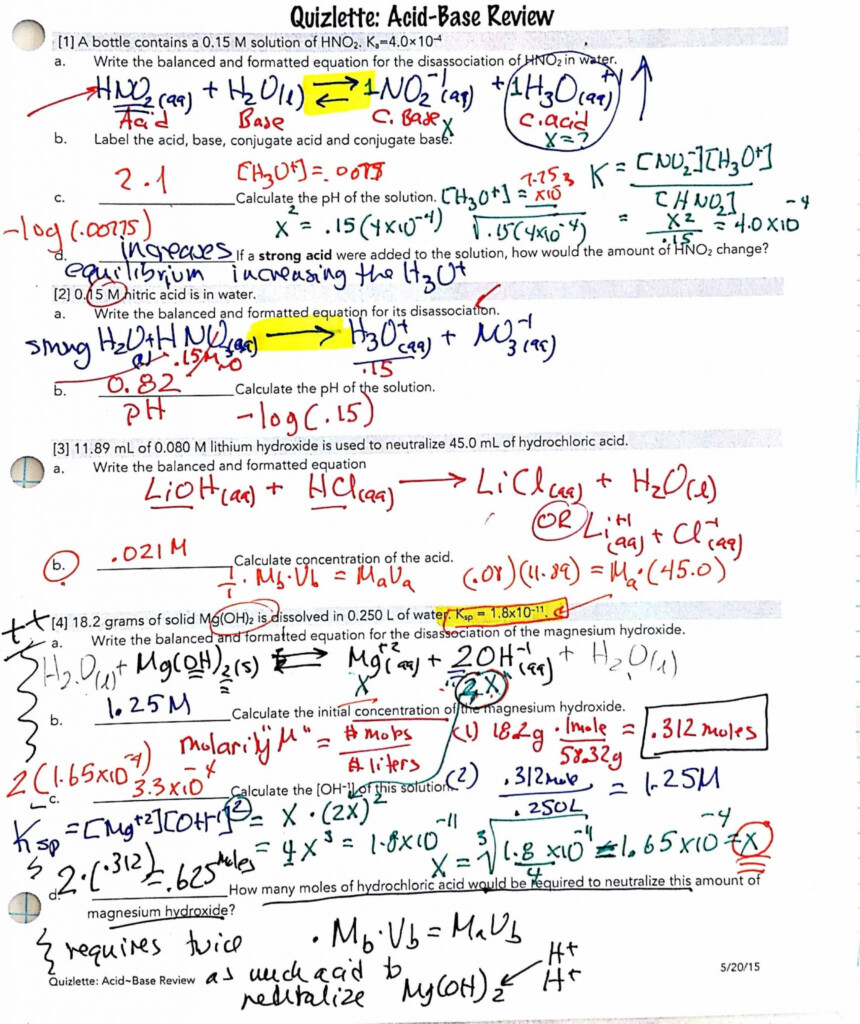 Quizlette: Acid-Base Review
[1] A bottle contains a 0.15 M solution of HNO₂. Kₐ=4.0×10⁻⁴
a. Write the balanced and formatted equation for the disassociation of HNO₂ in water.
HNO₂(aq) + H₂O(l) ⇌ 1NO₂⁻¹(aq) + 1H₃O⁺¹(aq)
Acid Base C. Base C. acid
X X=?
b. Label the acid, base, conjugate acid and conjugate base.
[H₃O⁺]=.0078 K = [NO₂⁻][H₃O⁺]
[HNO₂]
2.1 Calculate the pH of the solution. [H₃O⁺] = 7.75 x10⁻³
c.
-log(.00775) X² = .15(4x10⁻⁴) √.15(4x10⁻⁴) = X²/.15 = 4.0x10⁻⁴
d. increases If a strong acid were added to the solution, how would the amount of HNO₂ change?
equilibrium increasing the H₃O⁺
[2] 0.15 M nitric acid is in water.
a. Write the balanced and formatted equation for its disassociation.
strong H₂O + HNO₃(aq) → H₃O⁺(aq) + NO₃⁻¹(aq)
(l) .15M→0 .15
b. 0.82 Calculate the pH of the solution.
pH -log(.15)
[3] 11.89 mL of 0.080 M lithium hydroxide is used to neutralize 45.0 mL of hydrochloric acid.
a. Write the balanced and formatted equation
LiOH(aq) + HCl(aq) → LiCl(aq) + H₂O(l)
OR Li⁺¹(aq) + Cl⁻¹(aq)
b. .021 M Calculate concentration of the acid.
1/1 · Mb·Vb = MaVa (.08)(11.89) = Ma·(45.0)
[4] 18.2 grams of solid Mg(OH)₂ is dissolved in 0.250 L of water. Ksp = 1.8x10⁻¹¹.
a. Write the balanced and formatted equation for the disassociation of the magnesium hydroxide.
H₂O(l) + Mg(OH)₂(s) ⇌ Mg⁺²(aq) + 2OH⁻¹(aq) + H₂O(l)
X 2X
b. 1.25M Calculate the initial concentration of the magnesium hydroxide.
molarity "M" = # mols / # liters (1) 18.2g · 1mole/58.32g = .312 moles
2(1.65x10⁻⁴)
c. 3.3x10⁻⁴ Calculate the [OH⁻¹] of this solution. (2) .312mole/.250L = 1.25M
Ksp = [Mg⁺²][OH⁻¹]² = X·(2X)²
= 4X³ = 1.8x10⁻¹¹ X = ³√1.8x10⁻¹¹/4 = 1.65x10⁻⁴ = X
2·(.312) = .625 moles
d. How many moles of hydrochloric acid would be required to neutralize this amount of
magnesium hydroxide?
requires twice · Mb·Vb = MaVb
as much acid to
neutralize Mg(OH)₂ H⁺
H⁺
Quizlette: Acid~Base Review 5/20/15